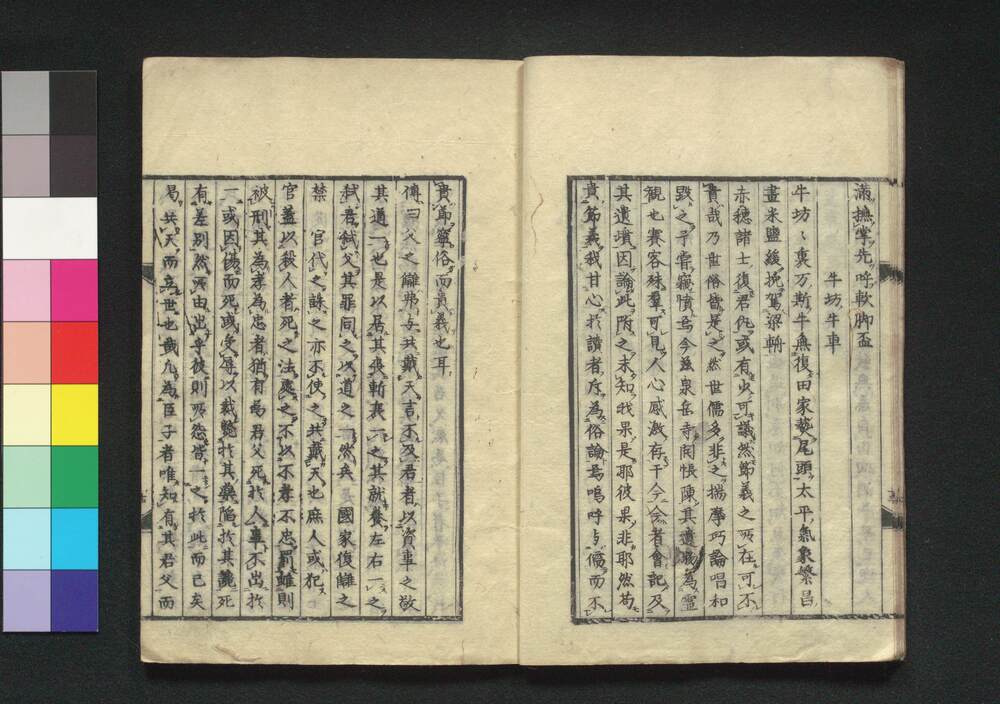 滿撫掌先呼軟脚盃
牛坊牛車
牛坊〻裏万斯牛無復田家藝尾頭太平氣象繁昌
畫米鹽緩挽駕梁輈
赤穗諸士復君仇或有少可議然節義之所在可不
貴哉乃世俗皆是之然世儒多非之揣摩巧論唱和
毀之予嘗竊憤焉今茲泉岳寺開帳陳其遺 為靈
觀也賽客殊羣可見人心感激存于今今者會記及
其遺墳因論此附之未知我果是耶彼果非耶然苟
貴節義我甘心於讀者斥為俗論焉嗚呼與儒而不
貴節寧俗而貴義也耳
傳曰父之讎弗與共戴天言不及君者以資事之敬
其道一也是以居其喪斬衰一之其就養左右一之
弑君弑父其罪同之以道之一然矣國家復讎之
禁官代之誅之亦不使之共戴天也庶人或犯
官蓋以殺人者死之法處之不以不孝不忠罰雖則
被刑其為孝為忠者猶有焉君父死於人事不出於
一或因傷而死或受辱以裁斃於其 陷於其讒死
有差別然所由出乎彼則所怨皆一之於此而已矣
曷共天而立世也戴凡為臣子者唯知有其君父而